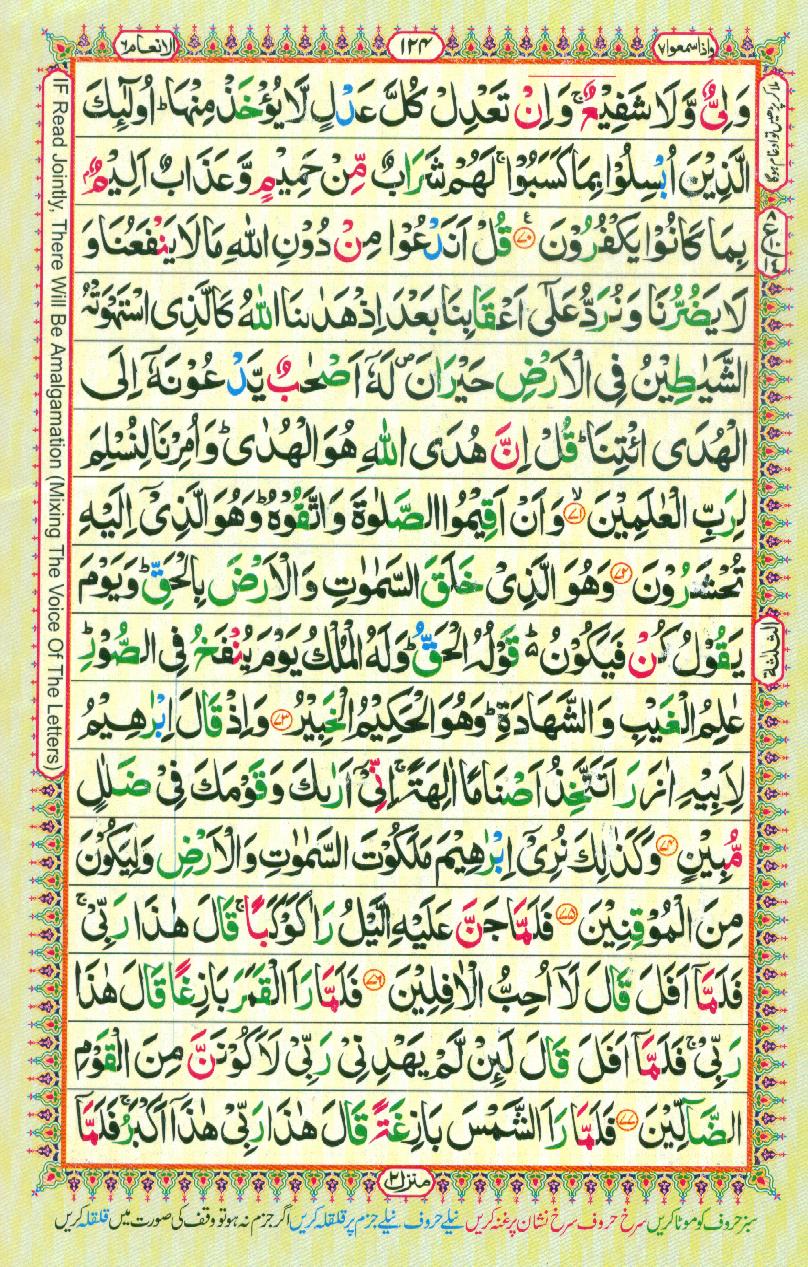 واذا سمعوا ٧
١٢٤
الانعام ٦
وَلِیٌّ وَّلَا شَفِیْعٌ ۚ وَاِنْ تَعْدِلْ كُلَّ عَدْلٍ لَّا یُؤْخَذْ مِنْهَا ؕ اُولٰٓئِكَ
الَّذِیْنَ اُبْسِلُوْا بِمَا كَسَبُوْا ۚ لَهُمْ شَرَابٌ مِّنْ حَمِیْمٍ وَّعَذَابٌ اَلِیْمٌۢ
بِمَا كَانُوْا یَكْفُرُوْنَ ﴿٧٠﴾ قُلْ اَنَدْعُوْا مِنْ دُوْنِ اللّٰهِ مَا لَا یَنْفَعُنَا وَ
لَا یَضُرُّنَا وَنُرَدُّ عَلٰۤی اَعْقَابِنَا بَعْدَ اِذْ هَدٰىنَا اللّٰهُ كَالَّذِی اسْتَهْوَتْهُ
الشَّیٰطِیْنُ فِی الْاَرْضِ حَیْرَانَ ۪ لَهٗۤ اَصْحٰبٌ یَّدْعُوْنَهٗۤ اِلَی
الْهُدَی ائْتِنَا ؕ قُلْ اِنَّ هُدَی اللّٰهِ هُوَ الْهُدٰی ؕ وَاُمِرْنَا لِنُسْلِمَ
لِرَبِّ الْعٰلَمِیْنَ ﴿٧١﴾ۙ وَاَنْ اَقِیْمُوا الصَّلٰوةَ وَاتَّقُوْهُ ؕ وَهُوَ الَّذِیْۤ اِلَیْهِ
تُحْشَرُوْنَ ﴿٧٢﴾ وَهُوَ الَّذِیْ خَلَقَ السَّمٰوٰتِ وَالْاَرْضَ بِالْحَقِّ ؕ وَیَوْمَ
یَقُوْلُ كُنْ فَیَكُوْنُ ؕ۬ قَوْلُهُ الْحَقُّ ؕ وَلَهُ الْمُلْكُ یَوْمَ یُنْفَخُ فِی الصُّوْرِ ؕ
عٰلِمُ الْغَیْبِ وَالشَّهَادَةِ ؕ وَهُوَ الْحَكِیْمُ الْخَبِیْرُ ﴿٧٣﴾ وَاِذْ قَالَ اِبْرٰهِیْمُ
لِاَبِیْهِ اٰزَرَ اَتَتَّخِذُ اَصْنَامًا اٰلِهَةً ۚ اِنِّیْۤ اَرٰىكَ وَقَوْمَكَ فِیْ ضَلٰلٍ
مُّبِیْنٍ ﴿٧٤﴾ وَكَذٰلِكَ نُرِیْۤ اِبْرٰهِیْمَ مَلَكُوْتَ السَّمٰوٰتِ وَالْاَرْضِ وَلِیَكُوْنَ
مِنَ الْمُوْقِنِیْنَ ﴿٧٥﴾ فَلَمَّا جَنَّ عَلَیْهِ الَّیْلُ رَاٰ كَوْكَبًا ۚ قَالَ هٰذَا رَبِّیْ ۚ
فَلَمَّاۤ اَفَلَ قَالَ لَاۤ اُحِبُّ الْاٰفِلِیْنَ ﴿٧٦﴾ فَلَمَّا رَاَ الْقَمَرَ بَازِغًا قَالَ هٰذَا
رَبِّیْ ۚ فَلَمَّاۤ اَفَلَ قَالَ لَئِنْ لَّمْ یَهْدِنِیْ رَبِّیْ لَاَكُوْنَنَّ مِنَ الْقَوْمِ
الضَّآلِّیْنَ ﴿٧٧﴾ فَلَمَّا رَاَ الشَّمْسَ بَازِغَةً قَالَ هٰذَا رَبِّیْ هٰذَاۤ اَكْبَرُ ۚ فَلَمَّاۤ
منزل ٢
سبز حروف کو موٹا کریں سرخ حروف سرخ نشان پر غنہ کریں نیلے حروف نیلے جزم پر قلقلہ کریں اگر جزم نہ ہو تو وقف کی صورت میں قلقلہ کریں
IF Read Jointly, There Will Be Amalgamation (Mixing The Voice Of The Letters)
الثلثة